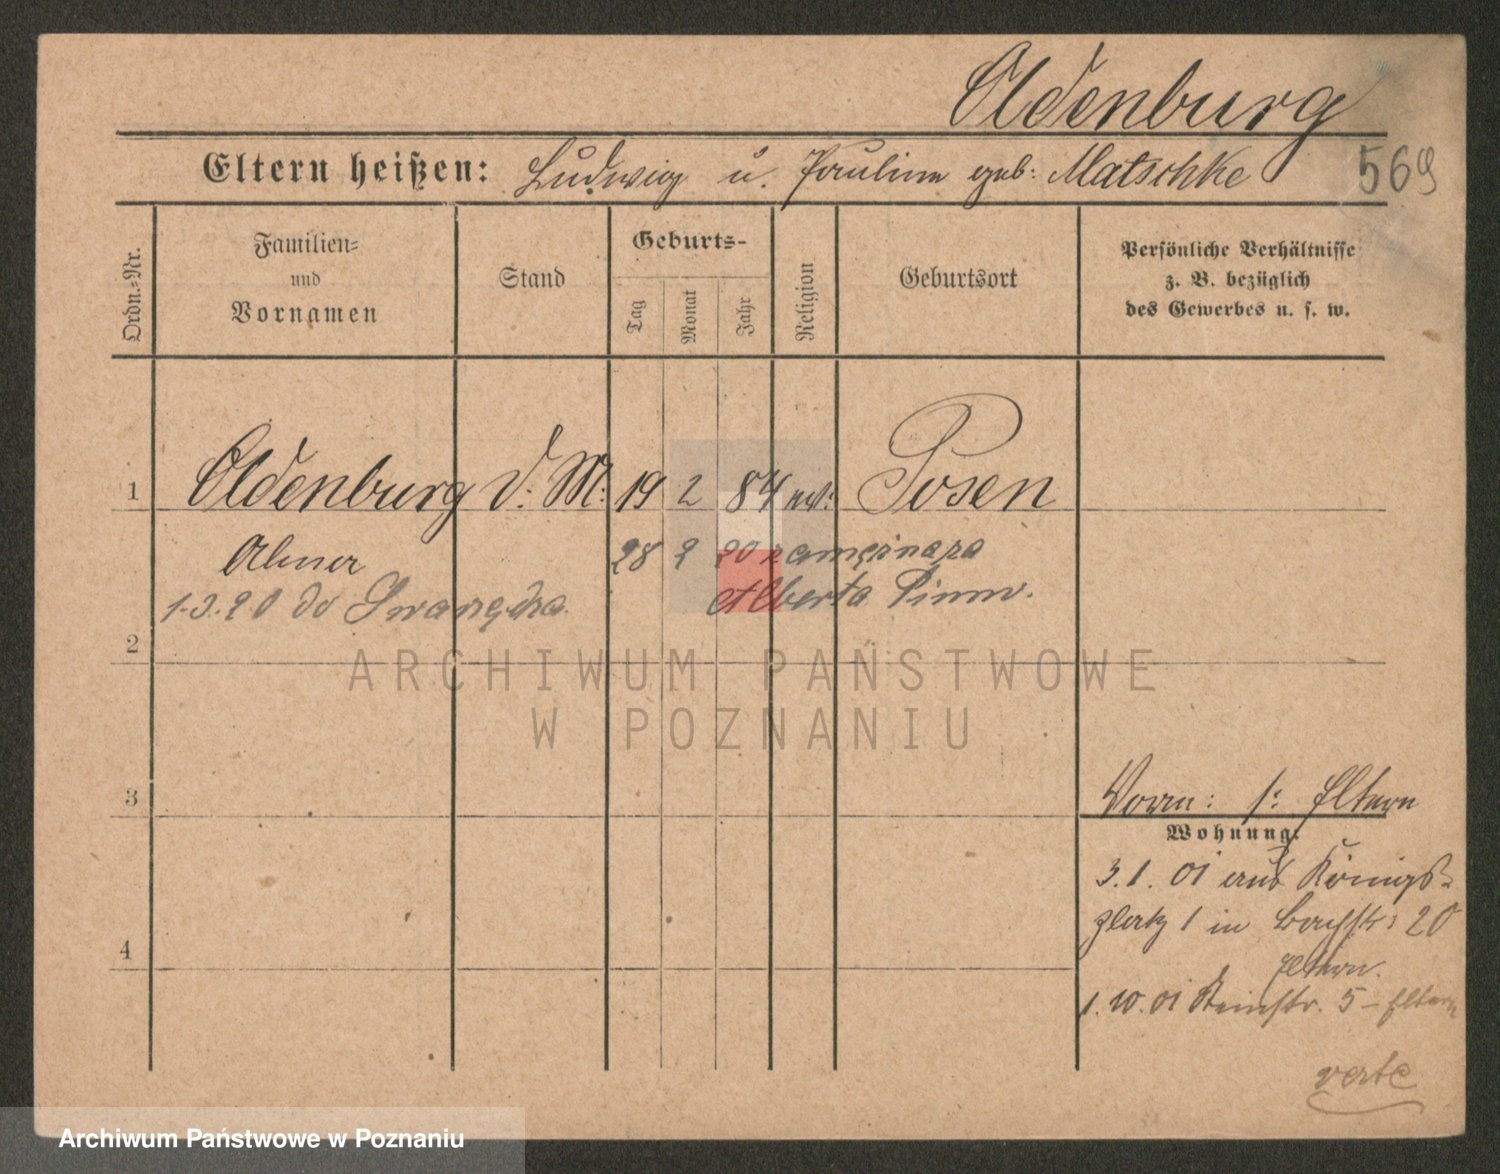 Oldenburg
Eltern heißen: Ludwig u. Pauline geb: Matschke 569
Ordn.-Nr.
Familien-
und
Vornamen
Stand
Geburts-
Tag
Monat
Jahr
Religion
Geburtsort
Persönliche Verhältnisse
z. B. bezüglich
des Gewerbes u. s. w.
1 Oldenburg d. M: 19 2 84 Posen
28 2 20
1.3.20 do
Alberta
2
ARCHIWUM PAŃSTWOWE
W POZNANIU
3
s: Eltern
Wohnung:
3.1.01 aus Königs-
platz 1 in Bachstr: 20
Eltern.
4
1.10.01 5 - Eltern
verte
Archiwum Państwowe w Poznaniu